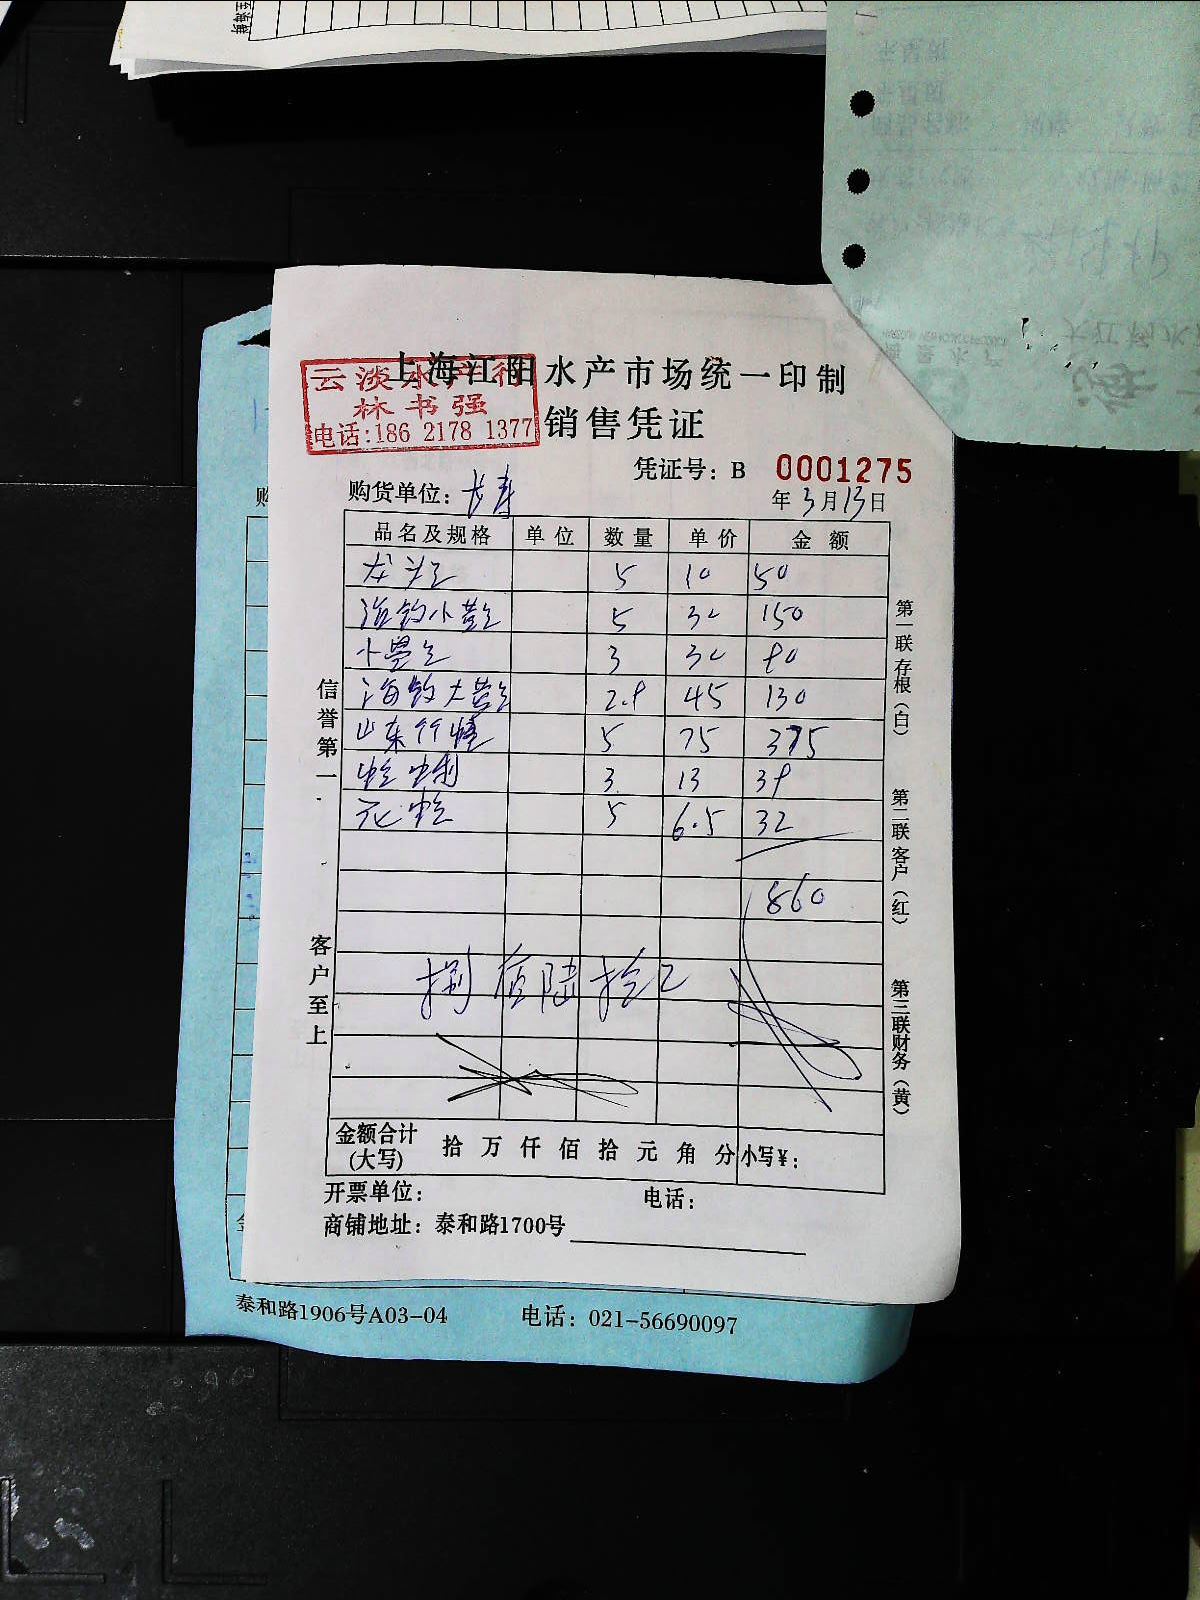 上海江阳水产市场统一印制
云淡水产行
林书强
电话:186 2178 1377
销售凭证
凭证号: B 0001275
购货单位: 长寿
年 3月13日
品名及规格 单位 数量 单价 金额
龙头 5 10 50
海钓小黄 5 30 150
小 3 30 90
海钓大黄 2.9 45 130
山东竹蛏 5 75 375
蛤蜊 3 13 39
花 5 6.5 32
860
捌佰陆拾元
信誉第一
客户至上
第一联存根(白)
第二联客户(红)
第三联财务(黄)
金额合计(大写) 拾 万 仟 佰 拾 元 角 分 小写¥:
开票单位: 电话:
商铺地址: 泰和路1700号
泰和路1906号A03-04 电话: 021-56690097